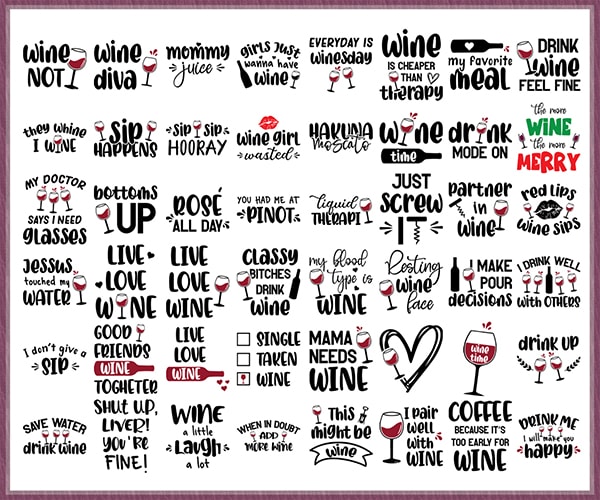 wine
NOT
wine
diva
mommy
juice
girls just
wanna have
wine
EVERYDAY IS
winesday
wine
IS CHEAPER
THAN
therapy
my favorite
meal
DRINK
wine
FEEL FINE
they whine
I WINE
SIP
HAPPENS
SIP SIP
HOORAY
wine girl
wasted
HAKUNA
MOSCATO
wine
time
drink
MODE ON
the more
WINE
the more
MERRY
MY DOCTOR
SAYS I NEED
glasses
bottoms
UP
ROSÉ
ALL DAY
YOU HAD ME AT
PINOT
liquid
THERAPI
JUST
SCREW
IT
partner
in
wine
red lips
wine sips
JESSUS
touched my
WATER
LIVE
LOVE
WINE
LIVE
LOVE
WINE
CLASSY
BITCHES
DRINK
wine
my blood
type is
WINE
Resting
wine
face
I MAKE
POUR
decisions
I DRINK WELL
with OTHERS
I don't give a
SIP
GOOD
FRIENDS
WINE
TOGHETER
LIVE
LOVE
WINE
SINGLE
TAKEN
WINE
MAMA
NEEDS
WINE
wine
time
drink up
SAVE WATER
drink wine
SHUT UP,
LIVER!
YOU'RE
FINE!
WINE
a little
Laugh
a lot
WHEN IN DOUBT
ADD
MORE WINE
This
might be
wine
I pair
well
with
WINE
COFFEE
BECAUSE IT'S
TOO EARLY FOR
WINE
DRINK ME
I will make you
happy